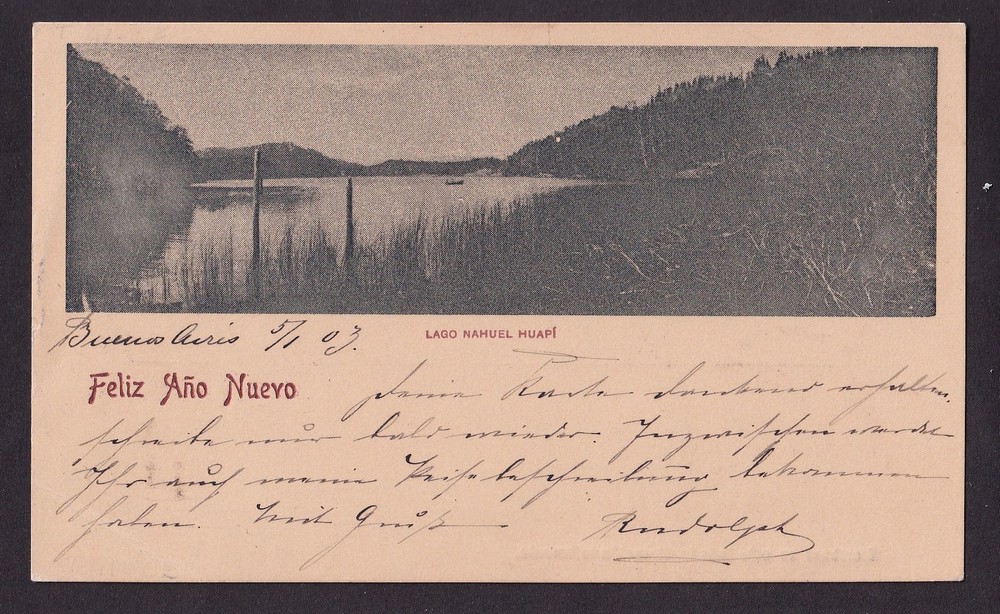 LAGO NAHUEL HUAPÍ
Buenos Aires 5/1 03.
Feliz Año Nuevo
Deine Karte dankend erhalten,
schreibe mir bald wieder. Inzwischen werdet
Ihr auch meine Reisebeschreibung bekommen
haben. Mit Gruß
Rudolph